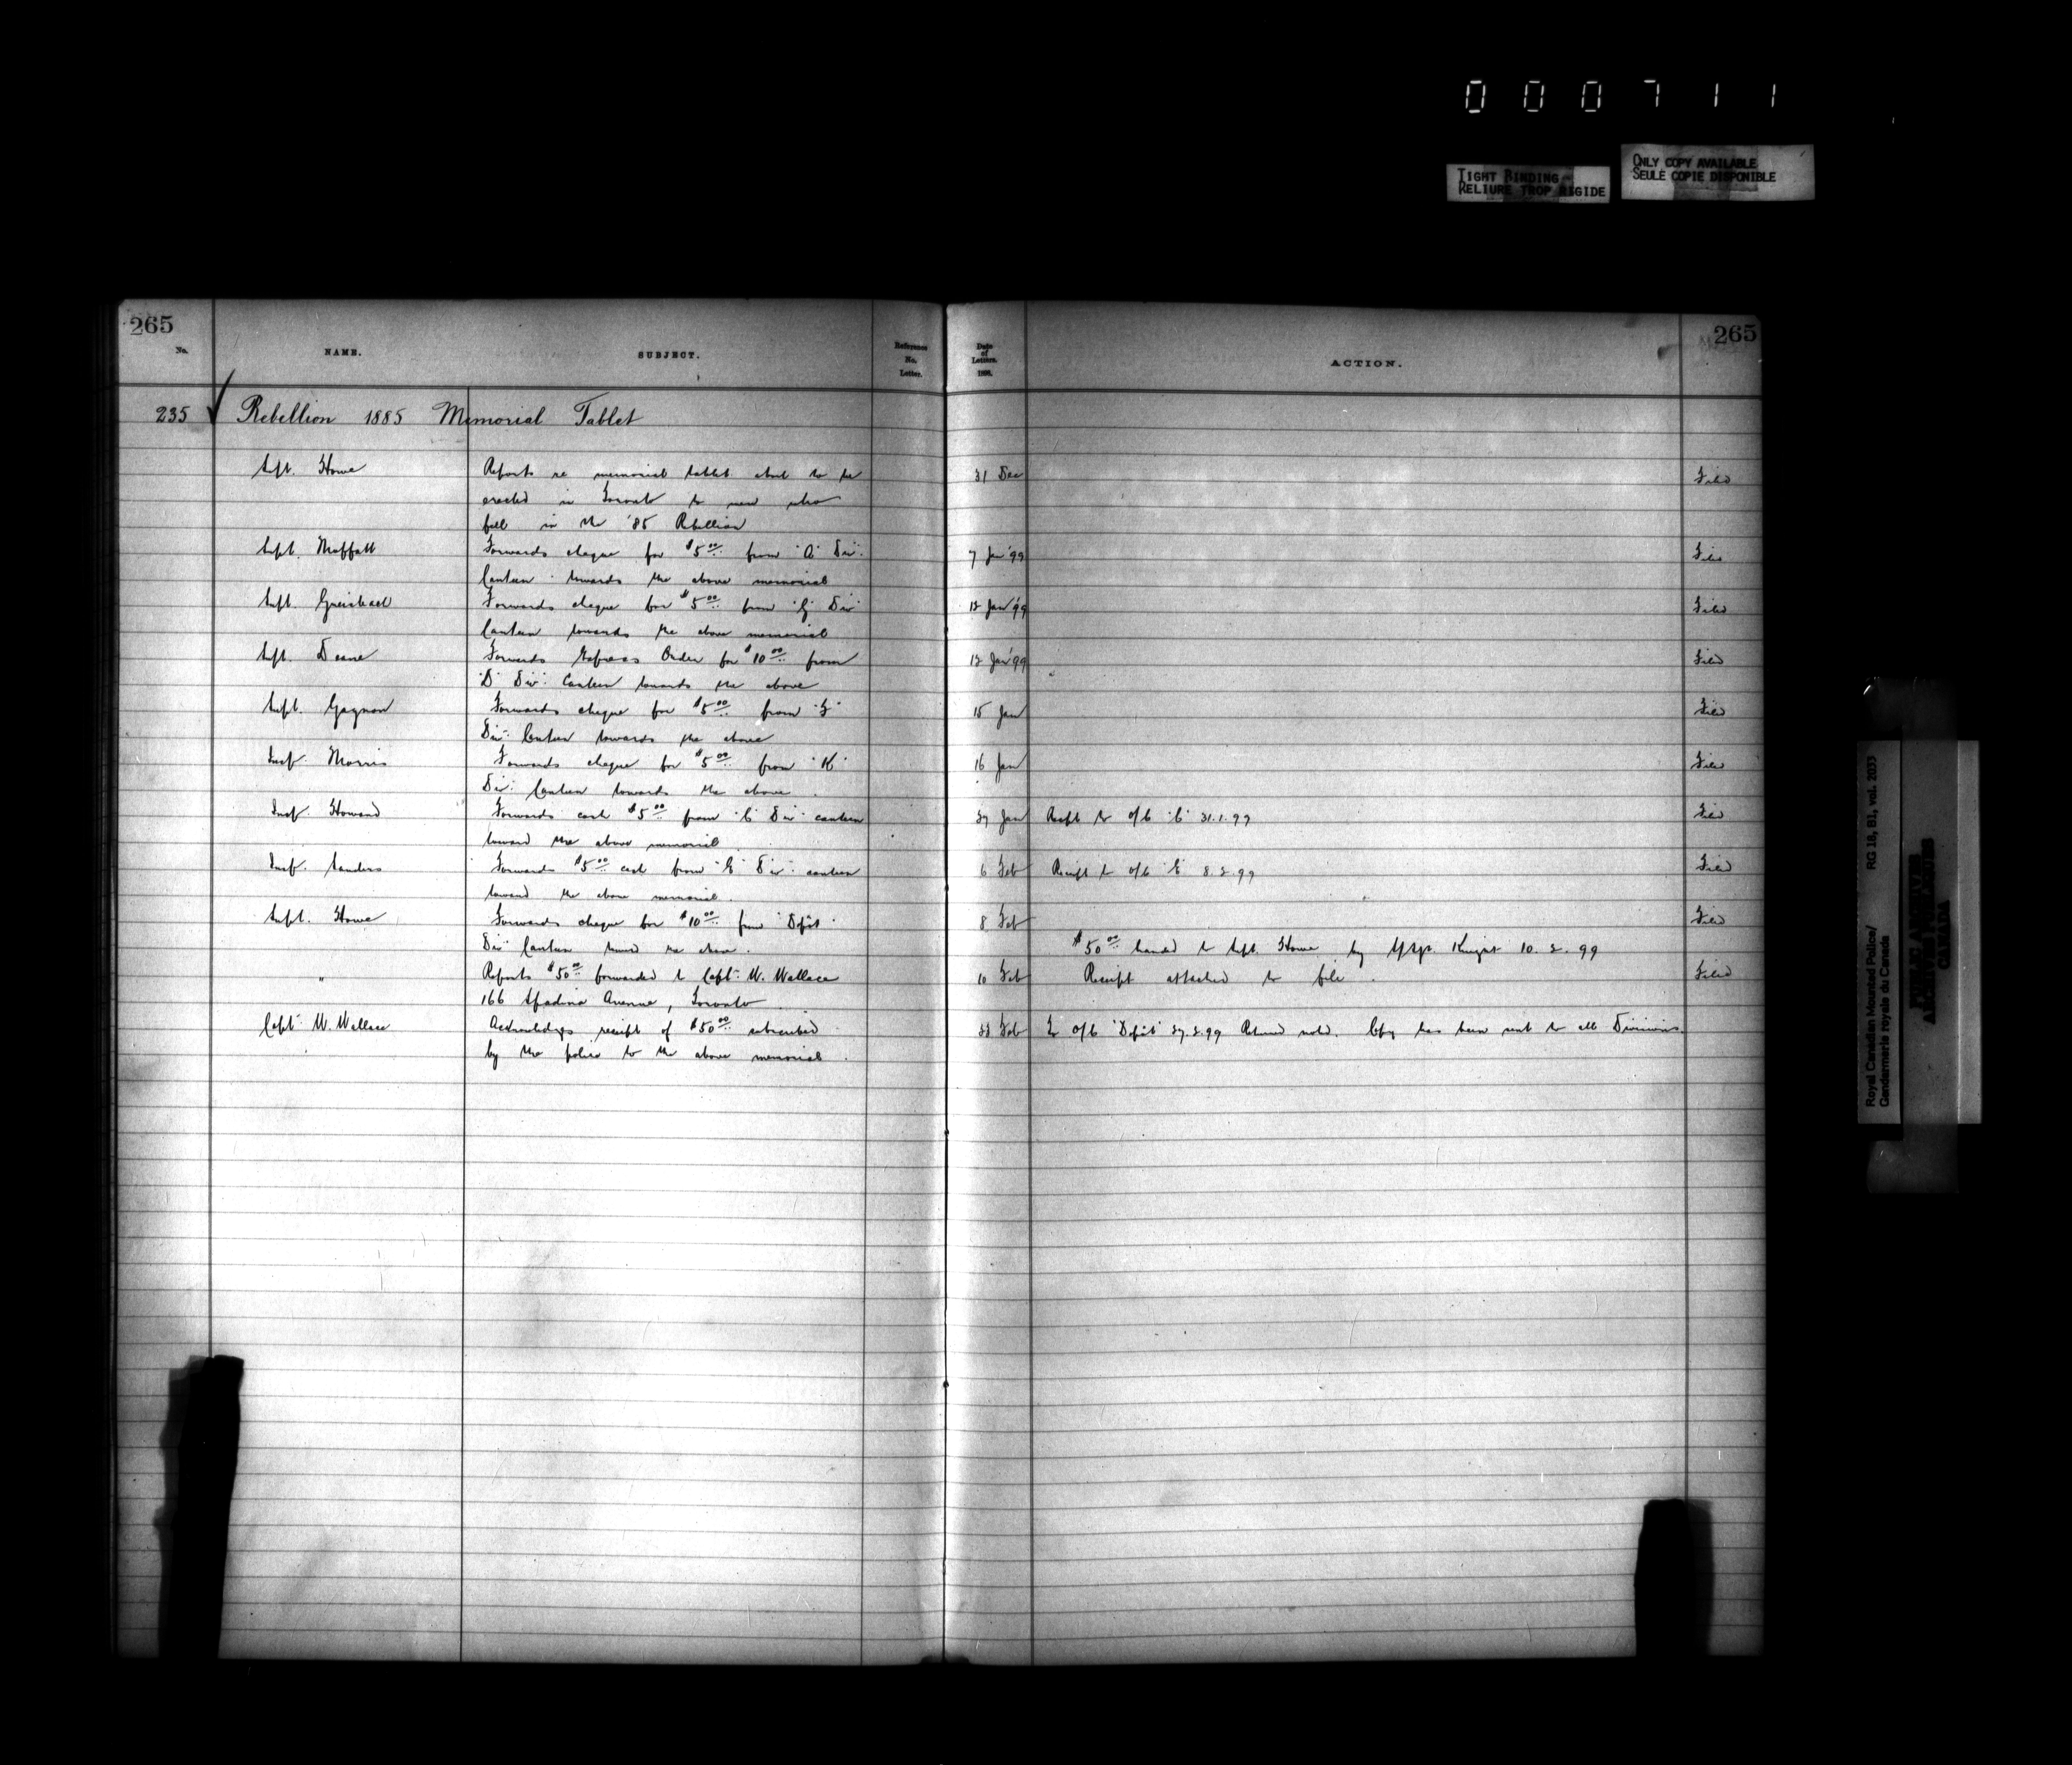 000711
TIGHT BINDING
RELIURE TROP RIGIDE
ONLY COPY AVAILABLE
SEULE COPIE DISPONIBLE
265
265
No.
NAME.
SUBJECT.
Reference No. Letter.
Date of Letters. 1898.
ACTION.
235 Rebellion 1885 Memorial Tablet
Supt. Howe Reports re memorial tablet about to be 31 Dec Filed
erected in Toronto to men who
fell in the '85 Rebellion
Supt. Moffatt Forwards cheque for $5.00 from "A" Div. 7 Jan '99 Filed
Canteen towards the above memorial
Supt. Griesbach Forwards cheque for $5.00 from "G" Div 12 Jan '99 Filed
Canteen towards the above memorial
Supt. Deane Forwards Express Order for $10.00 from 12 Jan '99 Filed
"D" Div: Canteen towards the above
Supt. Gagnon Forwards cheque for $5.00 from "F" 15 Jan Filed
Div: Canteen towards the above
Insp. Morris Forwards cheque for $5.00 from "K" 16 Jan Filed
Div: Canteen towards the above
Insp. Howard Forwards cash $5.00 from "C" Div canteen 27 Jan Receipt to O/C "C" 31.1.99 Filed
toward the above memorial
Insp. Sanders Forwards $5.00 cash from "E" Div. canteen 6 Feb Receipt to O/C "E" 8.2.99 Filed
toward the above memorial.
Supt. Howe Forwards cheque for $10.00 from "Depôt" 8 Feb Filed
Div Canteen toward the above.
$50.00 handed to Supt. Howe by Knight 10.2.99
" Reports $50.00 forwarded to Capt. W. Wallace 10 Feb Receipt attached to file. Filed
166 Spadina Avenue, Toronto
Capt. W. Wallace Acknowledges receipt of $50.00 subscribed 22 Feb To O/C "Depôt" 27.2.99 Returned noted. Copy has been sent to all Divisions.
by the police to the above memorial.
Royal Canadian Mounted Police/
Gendarmerie royale du Canada
RG 18, B1, vol. 2033
PUBLIC ARCHIVES
ARCHIVES PUBLIQUES
CANADA